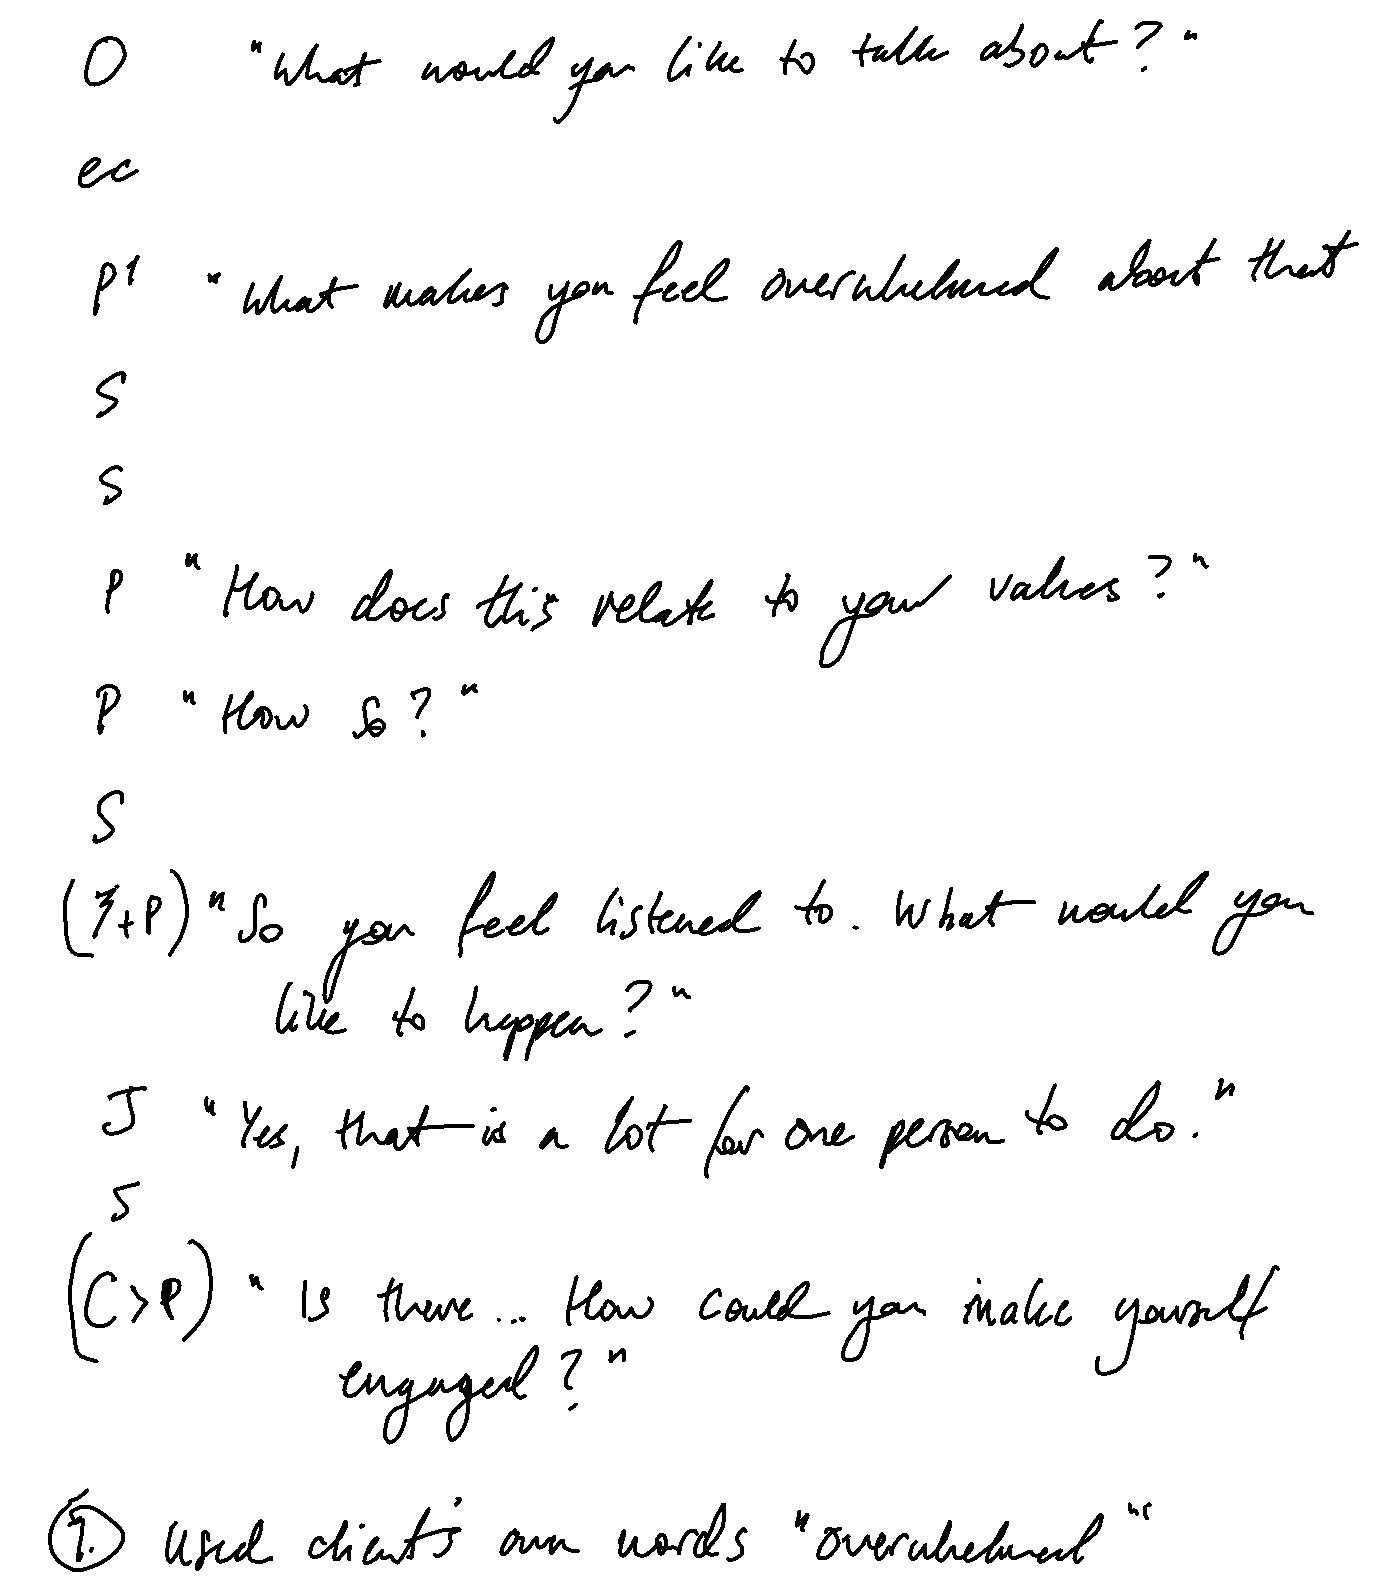 O "What would you like to talk about?"
ec
P1 "What makes you feel overwhelmed about that
S
S
P "How does this relate to your values?"
P "How so?"
S
( +P) "So you feel listened to. What would you
like to happen?"
J "Yes, that is a lot for one person to do."
S
(C>P) "Is there... How could you make yourself
engaged?"
1. Used client's own words "overwhelmed"